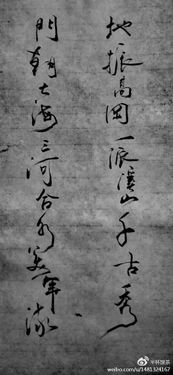 地振高岡一派溪山千古秀
門朝大海三河合水万年流
半杯饭茶
weibo.com/u/1481324167